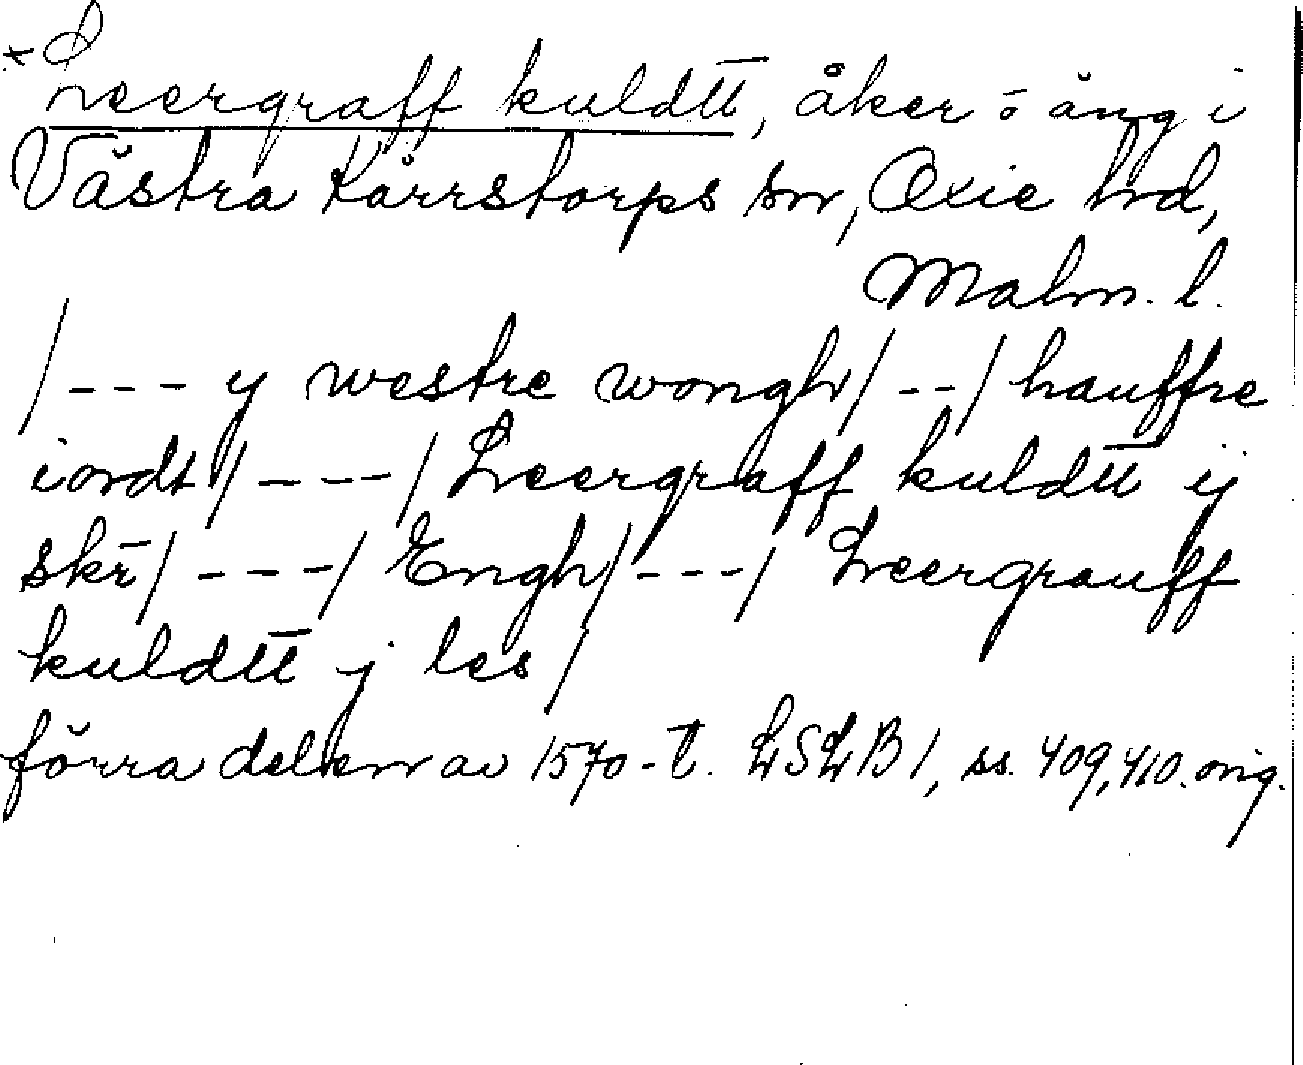 * Leergraff kuldtt, åker o äng i
Västra Kärrstorps sn, Oxie hd,
Malm. l.
/--- y westre wongh/--/hauffre
iordt/---/Leergraff kuldtt ij
skr̄/---/Engh/---/Leergrauff
kuldtt j les/
förra delen av 1570-t. LSLB1, ss. 409, 410. orig.